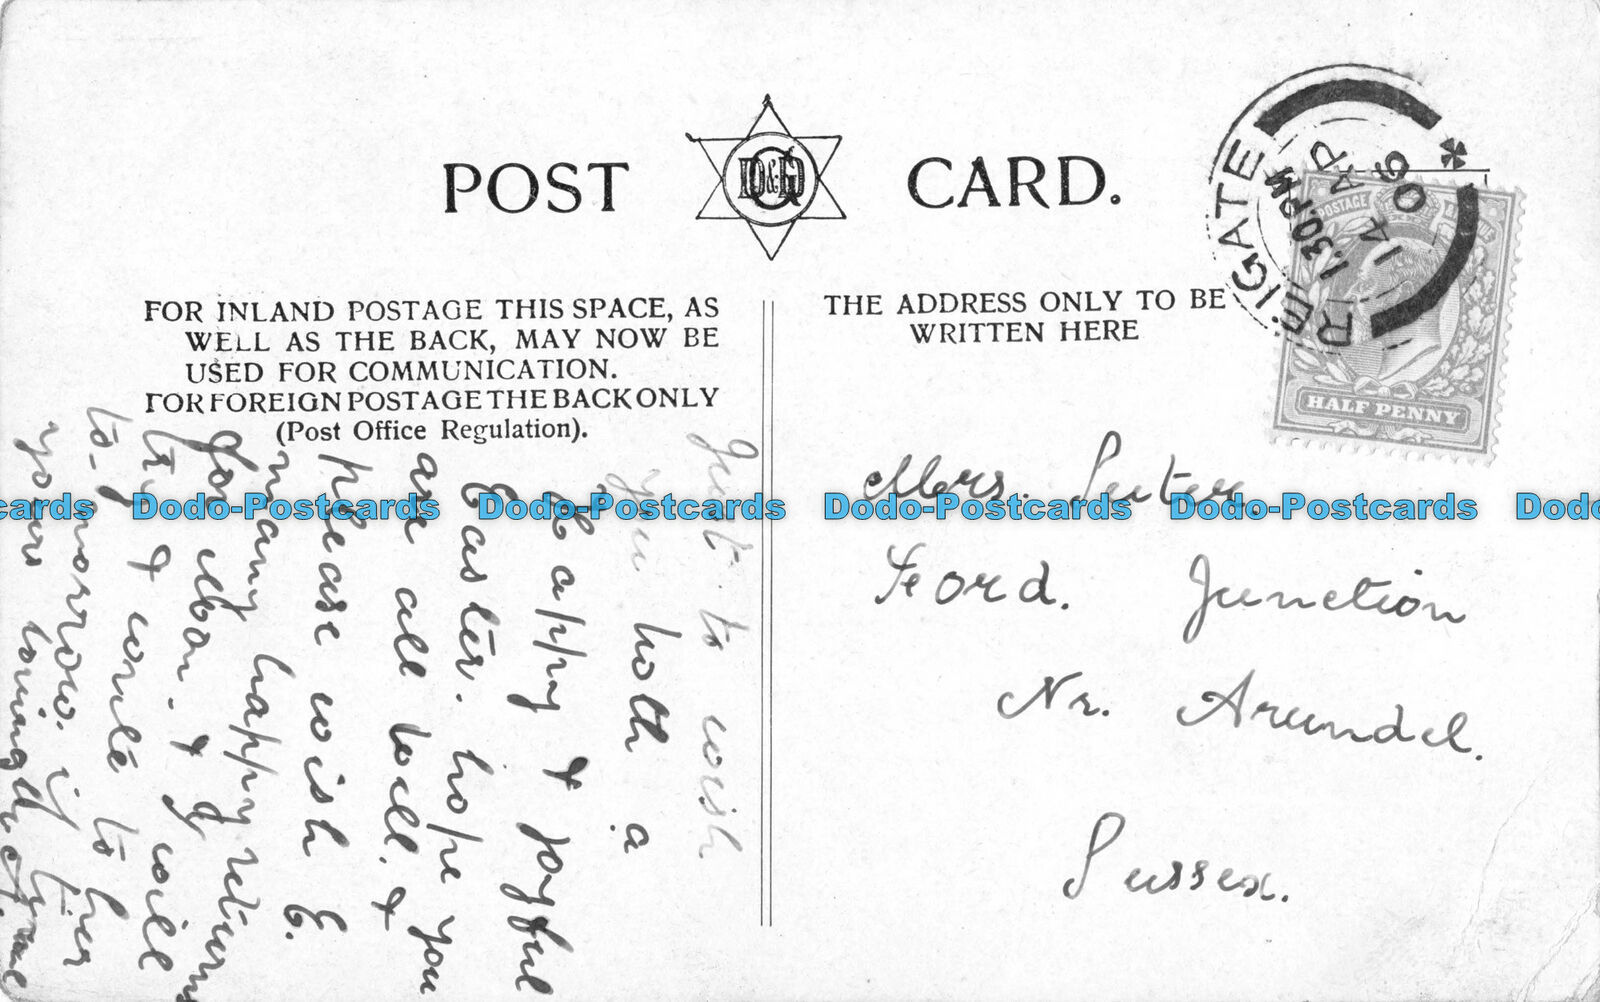 POST CARD.
D&G
FOR INLAND POSTAGE THIS SPACE, AS
WELL AS THE BACK, MAY NOW BE
USED FOR COMMUNICATION.
FOR FOREIGN POSTAGE THE BACK ONLY
(Post Office Regulation).
THE ADDRESS ONLY TO BE
WRITTEN HERE
REIGATE
1.30.PM
14 AP
06
POSTAGE
HALF PENNY
Just to wish
you both a
happy & joyful
Easter. hope you
are all well. &
please wish E.
many happy returns
for Mon. & I will
try & write to her
to-morrow. if time
yours lovingly
Mrs. Suter.
Ford. Junction
Nr. Arundel.
Sussex.
Dodo-Postcards Dodo-Postcards Dodo-Postcards Dodo-Postcards